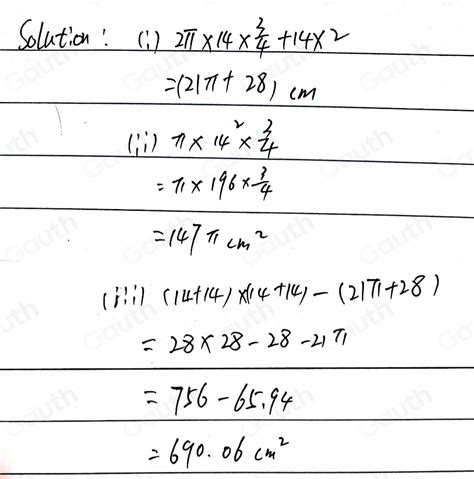 Solution: (i) 2π×14×3/4+14×2
=(21π+28) cm
(ii) π×14²×3/4
=π×196×3/4
=147π cm²
(iii) (14+14)×(14+14)-(21π+28)
=28×28-28-21π
=756-65.94
=690.06 cm²